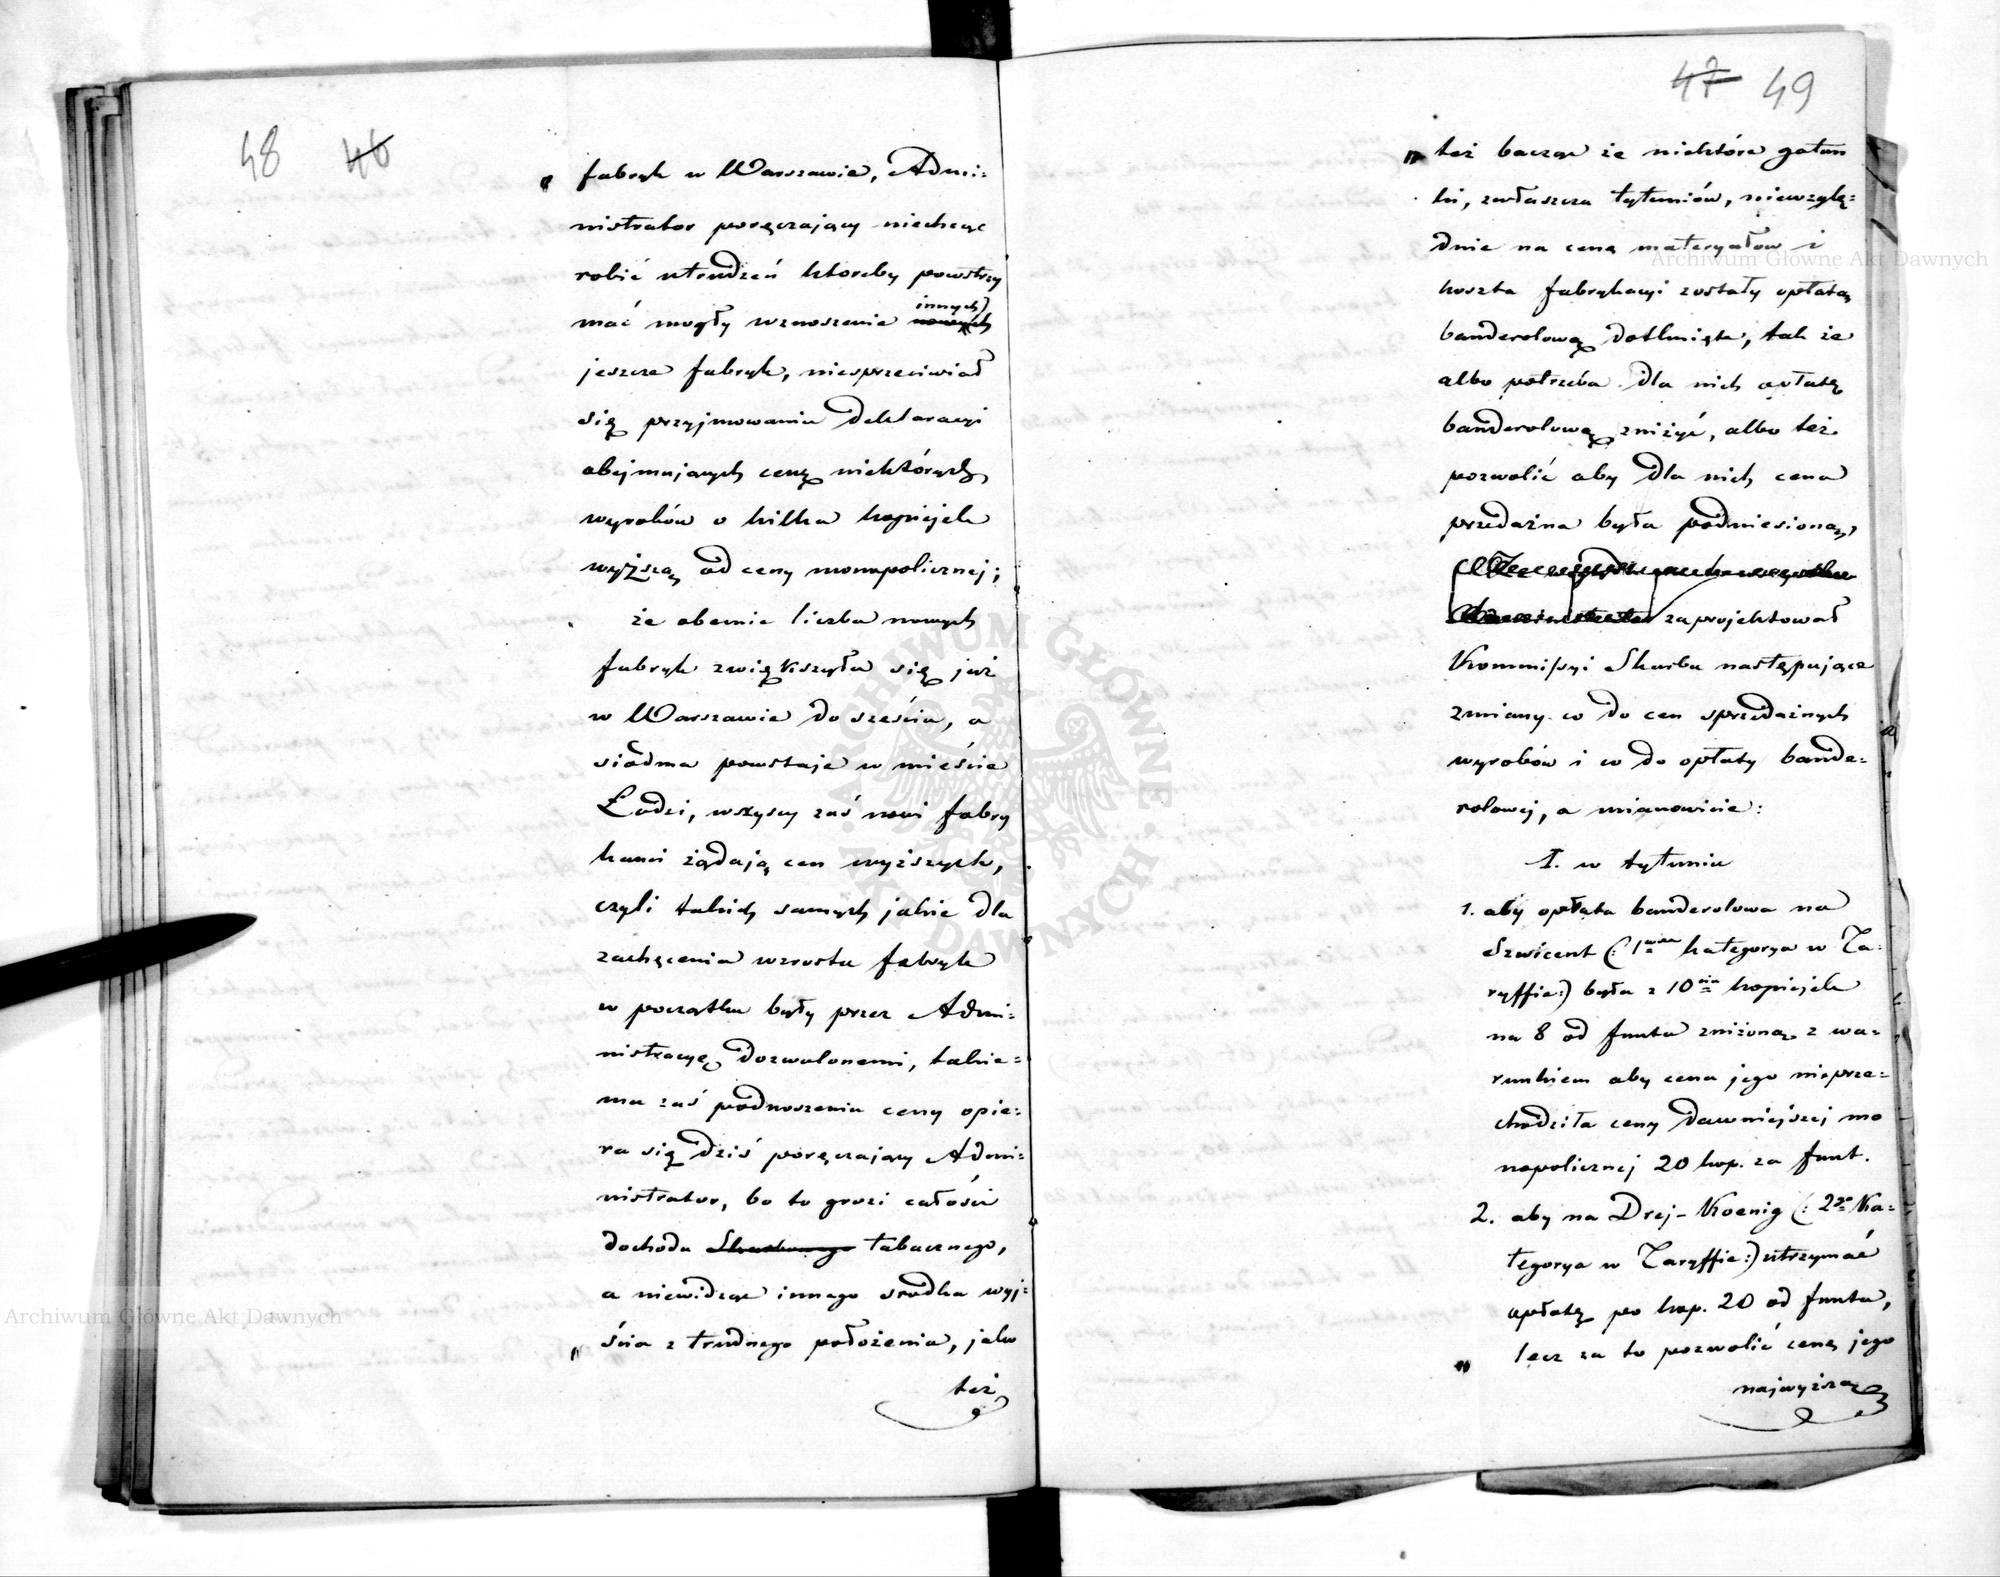 48 46
„ fabryk w Warszawie, Admi:
nistrator poręczający niechcąc
robić utrudzeń ktoreby powstrzy
innych
mać mogły wznoszenie nowych
jeszcze fabryk, niesprzeciwiał
się przyjmowaniu deklaracyi
obejmujących cenę niektórych
wyrobów o kilka kopiejek
wyższą od ceny monopolicznej;
że obecnie liczba nowych
fabryk zwiększyła się już
w Warszawie do sześciu, a
siódma powstaje w mieście
Łodzi, wszyscy zaś nowi fabry
kanci żądają cen wyższych,
czyli takich samych jakie dla
zachęcenia wzrostu fabryk
w początku były przez Admi:
nistracyę dozwolonemi, takie=
mu zaś podnoszeniu ceny opie:
ra się dziś poręczający Admi:
nistrator, bo to grozi całości
dochodu Skarbowego tabacznego,
a niewidząc innego srodka wyj:
„ ścia z trudnego położenia, jako
też
47 49
„ też bacząc że niektóre gatun
ki, zwłaszcza tytuniów, niewzglę:
dnie na cenę materyałów i
koszta fabrykacyi zostały opłatą
banderolową dotknięte, tak że
albo potrzeba dla nich opłatę
banderolową zniżyć, albo też
pozwolić aby dla nich cena
przedażna była podniesioną,
zaprojektował
Kommissyi Skarbu następujące
zmiany co do cen sprzedażnych
wyrobów i co do opłaty bande=
rolowej, a mianowicie:
I. w tytuniu
1. aby opłata banderolowa na
Szwicent (: 1wsza kategorya w Ta:
ryffie:) była z 10ciu kopiejek
na 8 od funta zniżoną z wa=
runkiem aby cena jego nieprze=
chodziła ceny dawniejszej mo
nopolicznej 20 kop. za funt.
2. aby na Drej-Koenig (: 2ga Ka=
tegorya w Taryffie:) utrzymać
opłatę po kop. 20 od funta,
„ lecz za to pozwolić cenę jego
najwyższą
Archiwum Główne Akt Dawnych
Archiwum Główne Akt Dawnych
ARCHIWUM GŁÓWNE AKT DAWNYCH